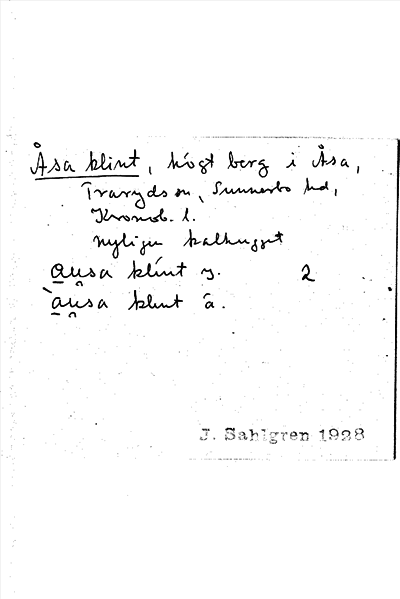 Åsa klint, högt berg i Åsa,
Traryds sn, Sunnerbo hd,
Kronob. l.
nyligen kalhugget
au̯sa klint y. 2
`àu̯sa klint â.
J. Sahlgren 1928